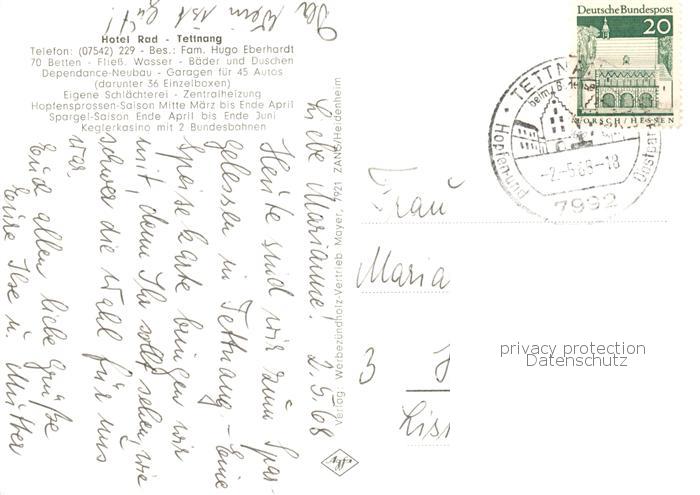 Der Wein ist gut!
Hotel Rad - Tettnang
Telefon: (07542) 229 - Bes.: Fam. Hugo Eberhardt
70 Betten - Fließ. Wasser - Bäder und Duschen
Dependance-Neubau - Garagen für 45 Autos
(darunter 36 Einzelboxen)
Eigene Schlächterei - Zentralheizung
Hopfensprossen-Saison Mitte März bis Ende April
Spargel-Saison Ende April bis Ende Juni
Keglerkasino mit 2 Bundesbahnen
Liebe Marianne! 2.5.68
Heute sind wir zum Spar-
gelessen in Tettnang - Eine
Speisekarte bringen wir
mit, dem Ihr sollt sehen, wie
schwer die Wahl für uns
war.
Euch allen liebe Grüße
Eure Ilse u. Mutter
Verlag: Werbezündholz-Vertrieb Mayer, 7921 ZANG/Heidenheim
Agfa
Deutsche Bundespost
20
LORSCH/HESSEN
TETTNA
Hopfen- und
-2.-5.68-18
7992
Frau
Maria
3
privacy protection
Datenschutz